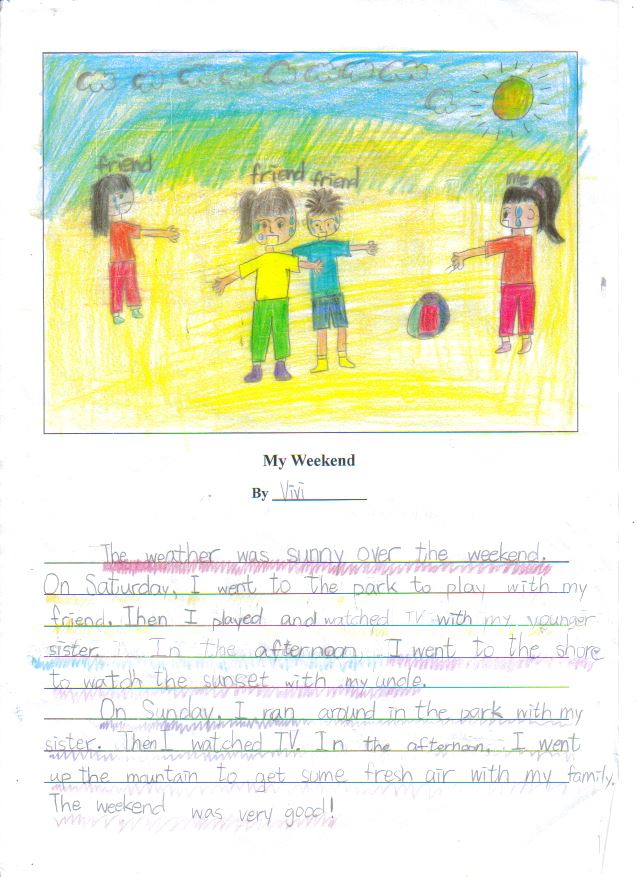 friend
friend friend
me
My Weekend
By Vivi
The weather was sunny over the weekend.
On Saturday, I went to the park to play with my
friend. Then I played and watched TV with my younger
sister. In the afternoon I went to the shore
to watch the sunset with my uncle.
On Sunday, I ran around in the park with my
sister. Then I watched TV. In the afternoon, I went
up the mountain to get some fresh air with my family.
The weekend was very good!